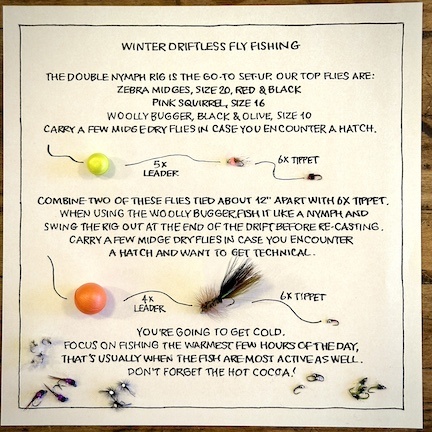 WINTER DRIFTLESS FLY FISHING
THE DOUBLE NYMPH RIG IS THE GO-TO SET-UP. OUR TOP FLIES ARE:
ZEBRA MIDGES, SIZE 20, RED & BLACK
PINK SQUIRREL, SIZE 16
WOOLLY BUGGER, BLACK & OLIVE, SIZE 10
CARRY A FEW MIDGE DRY FLIES IN CASE YOU ENCOUNTER A HATCH.
5X
LEADER
6X TIPPET
COMBINE TWO OF THESE FLIES TIED ABOUT 12" APART WITH 6X TIPPET.
WHEN USING THE WOOLLY BUGGER, FISH IT LIKE A NYMPH AND
SWING THE RIG OUT AT THE END OF THE DRIFT BEFORE RE-CASTING.
CARRY A FEW MIDGE DRY FLIES IN CASE YOU ENCOUNTER
A HATCH AND WANT TO GET TECHNICAL.
4X
LEADER
6X TIPPET
YOU'RE GOING TO GET COLD.
FOCUS ON FISHING THE WARMEST FEW HOURS OF THE DAY,
THAT'S USUALLY WHEN THE FISH ARE MOST ACTIVE AS WELL.
DON'T FORGET THE HOT COCOA!